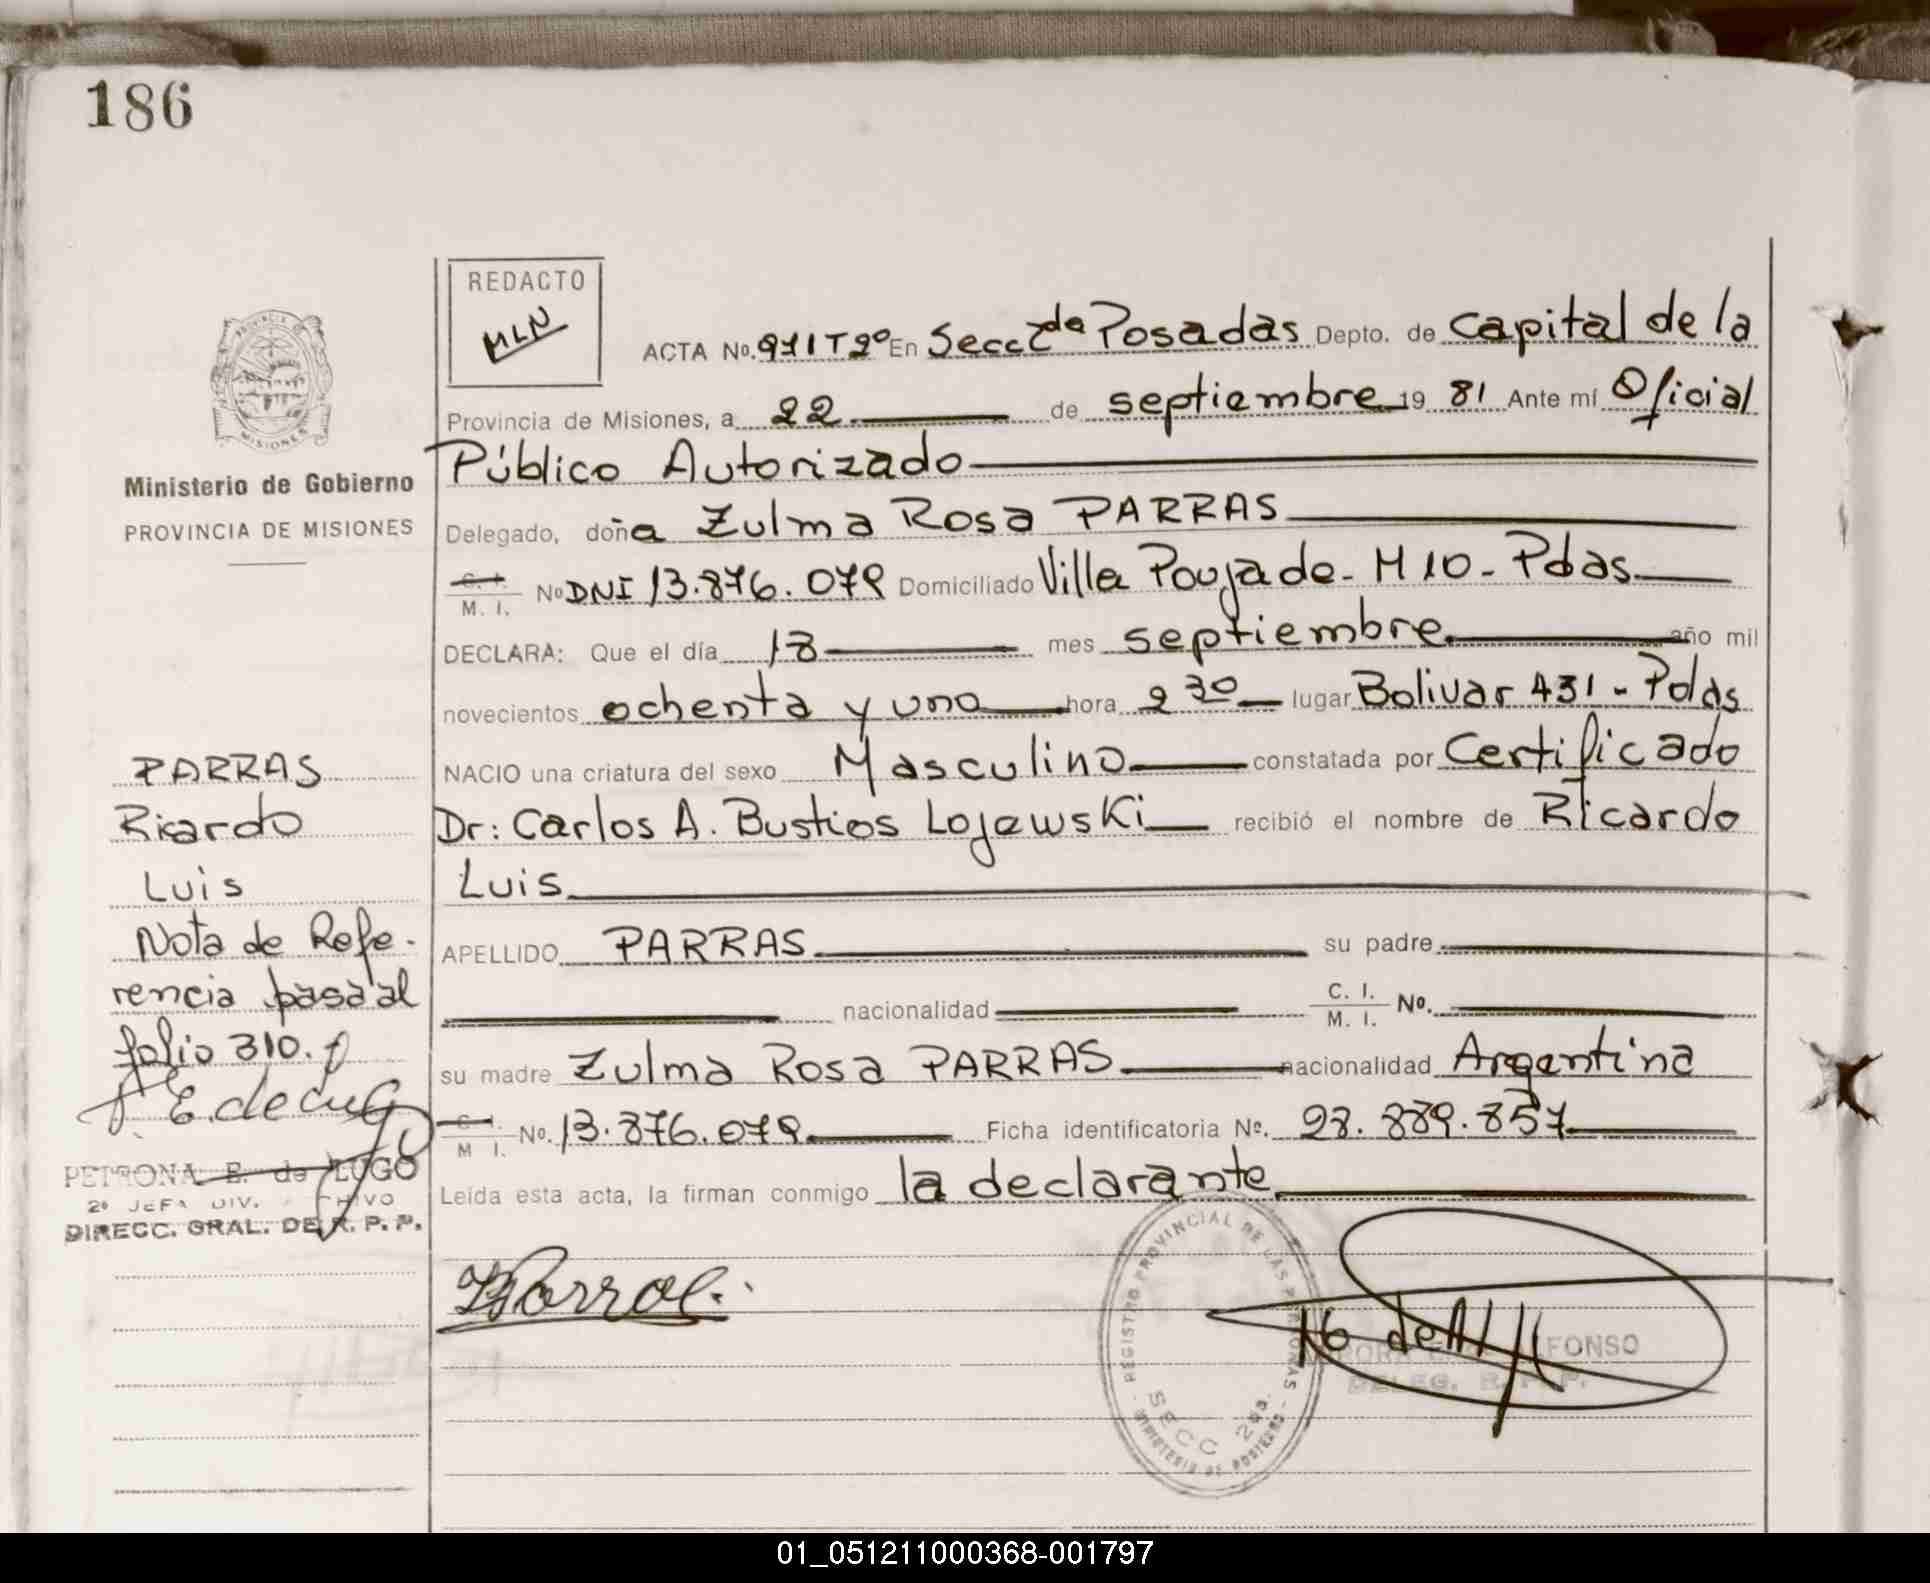 186
REDACTO
MLN
ACTA No. 971 T 2º En Secc 2da Posadas Depto. de Capital de la
Provincia de Misiones, a 22 de septiembre 19 81 Ante mí Oficial
Público Autorizado
Delegado, doña Zulma Rosa PARRAS
C. I.
M. I. No DNI 13.876.079 Domiciliado Villa Poujade - M 10 - Pdas
DECLARA: Que el día 18 mes septiembre año mil
novecientos ochenta y uno hora 2 30 lugar Bolivar 431 - Pdas
NACIO una criatura del sexo Masculino constatada por Certificado
Dr: Carlos A. Bustios Lojewski recibió el nombre de Ricardo
Luis
APELLIDO PARRAS su padre
nacionalidad C. I.
M. I. No.
su madre Zulma Rosa PARRAS nacionalidad Argentina
C. I.
M I. No. 13.876.079 Ficha identificatoria No. 28.889.857
Leída esta acta, la firman conmigo la declarante
PROVINCIA DE
MISIONES
Ministerio de Gobierno
PROVINCIA DE MISIONES
PARRAS
Ricardo
Luis
Nota de Refe-
rencia pasa al
folio 310.
E. de Lugo
PETRONA E. de LUGO
2º JEFA DIV. ARCHIVO
DIRECC. GRAL. DE R. P. P.
REGISTRO PROVINCIAL DE LAS PERSONAS
SECC 2da.
MINISTERIO DE GOBIERNO
ALFONSO
DELEG. R. P. P.
01_051211000368-001797